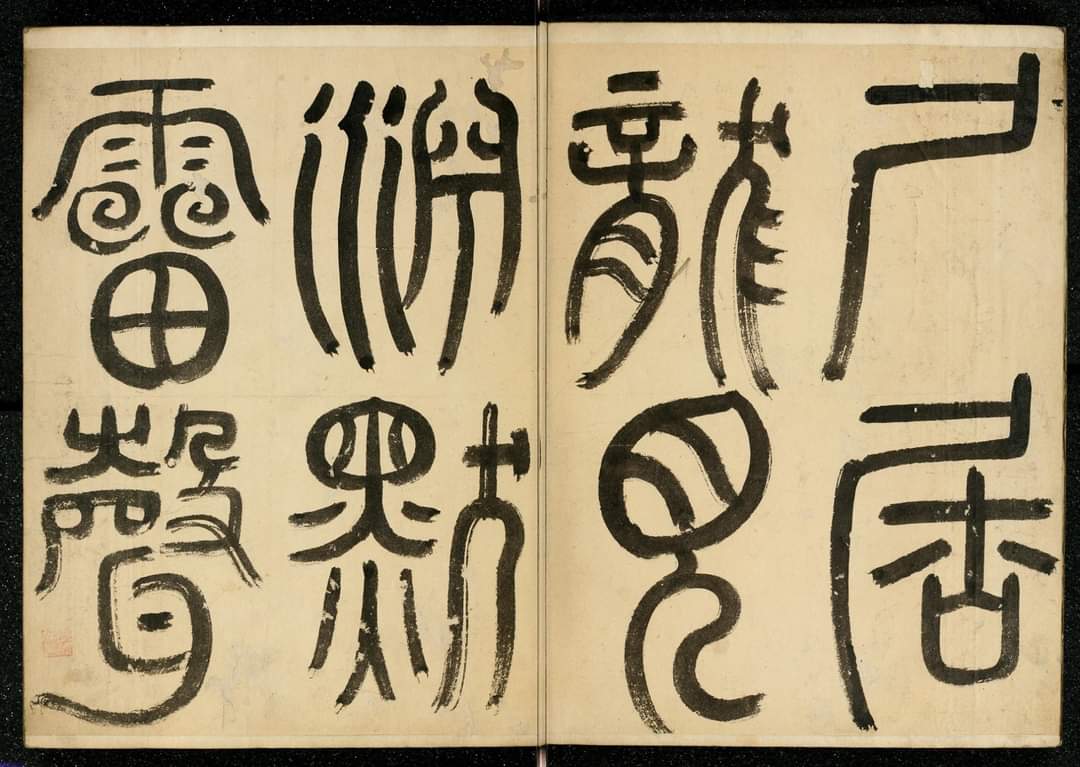 尸居
龍見
淵默
雷聲